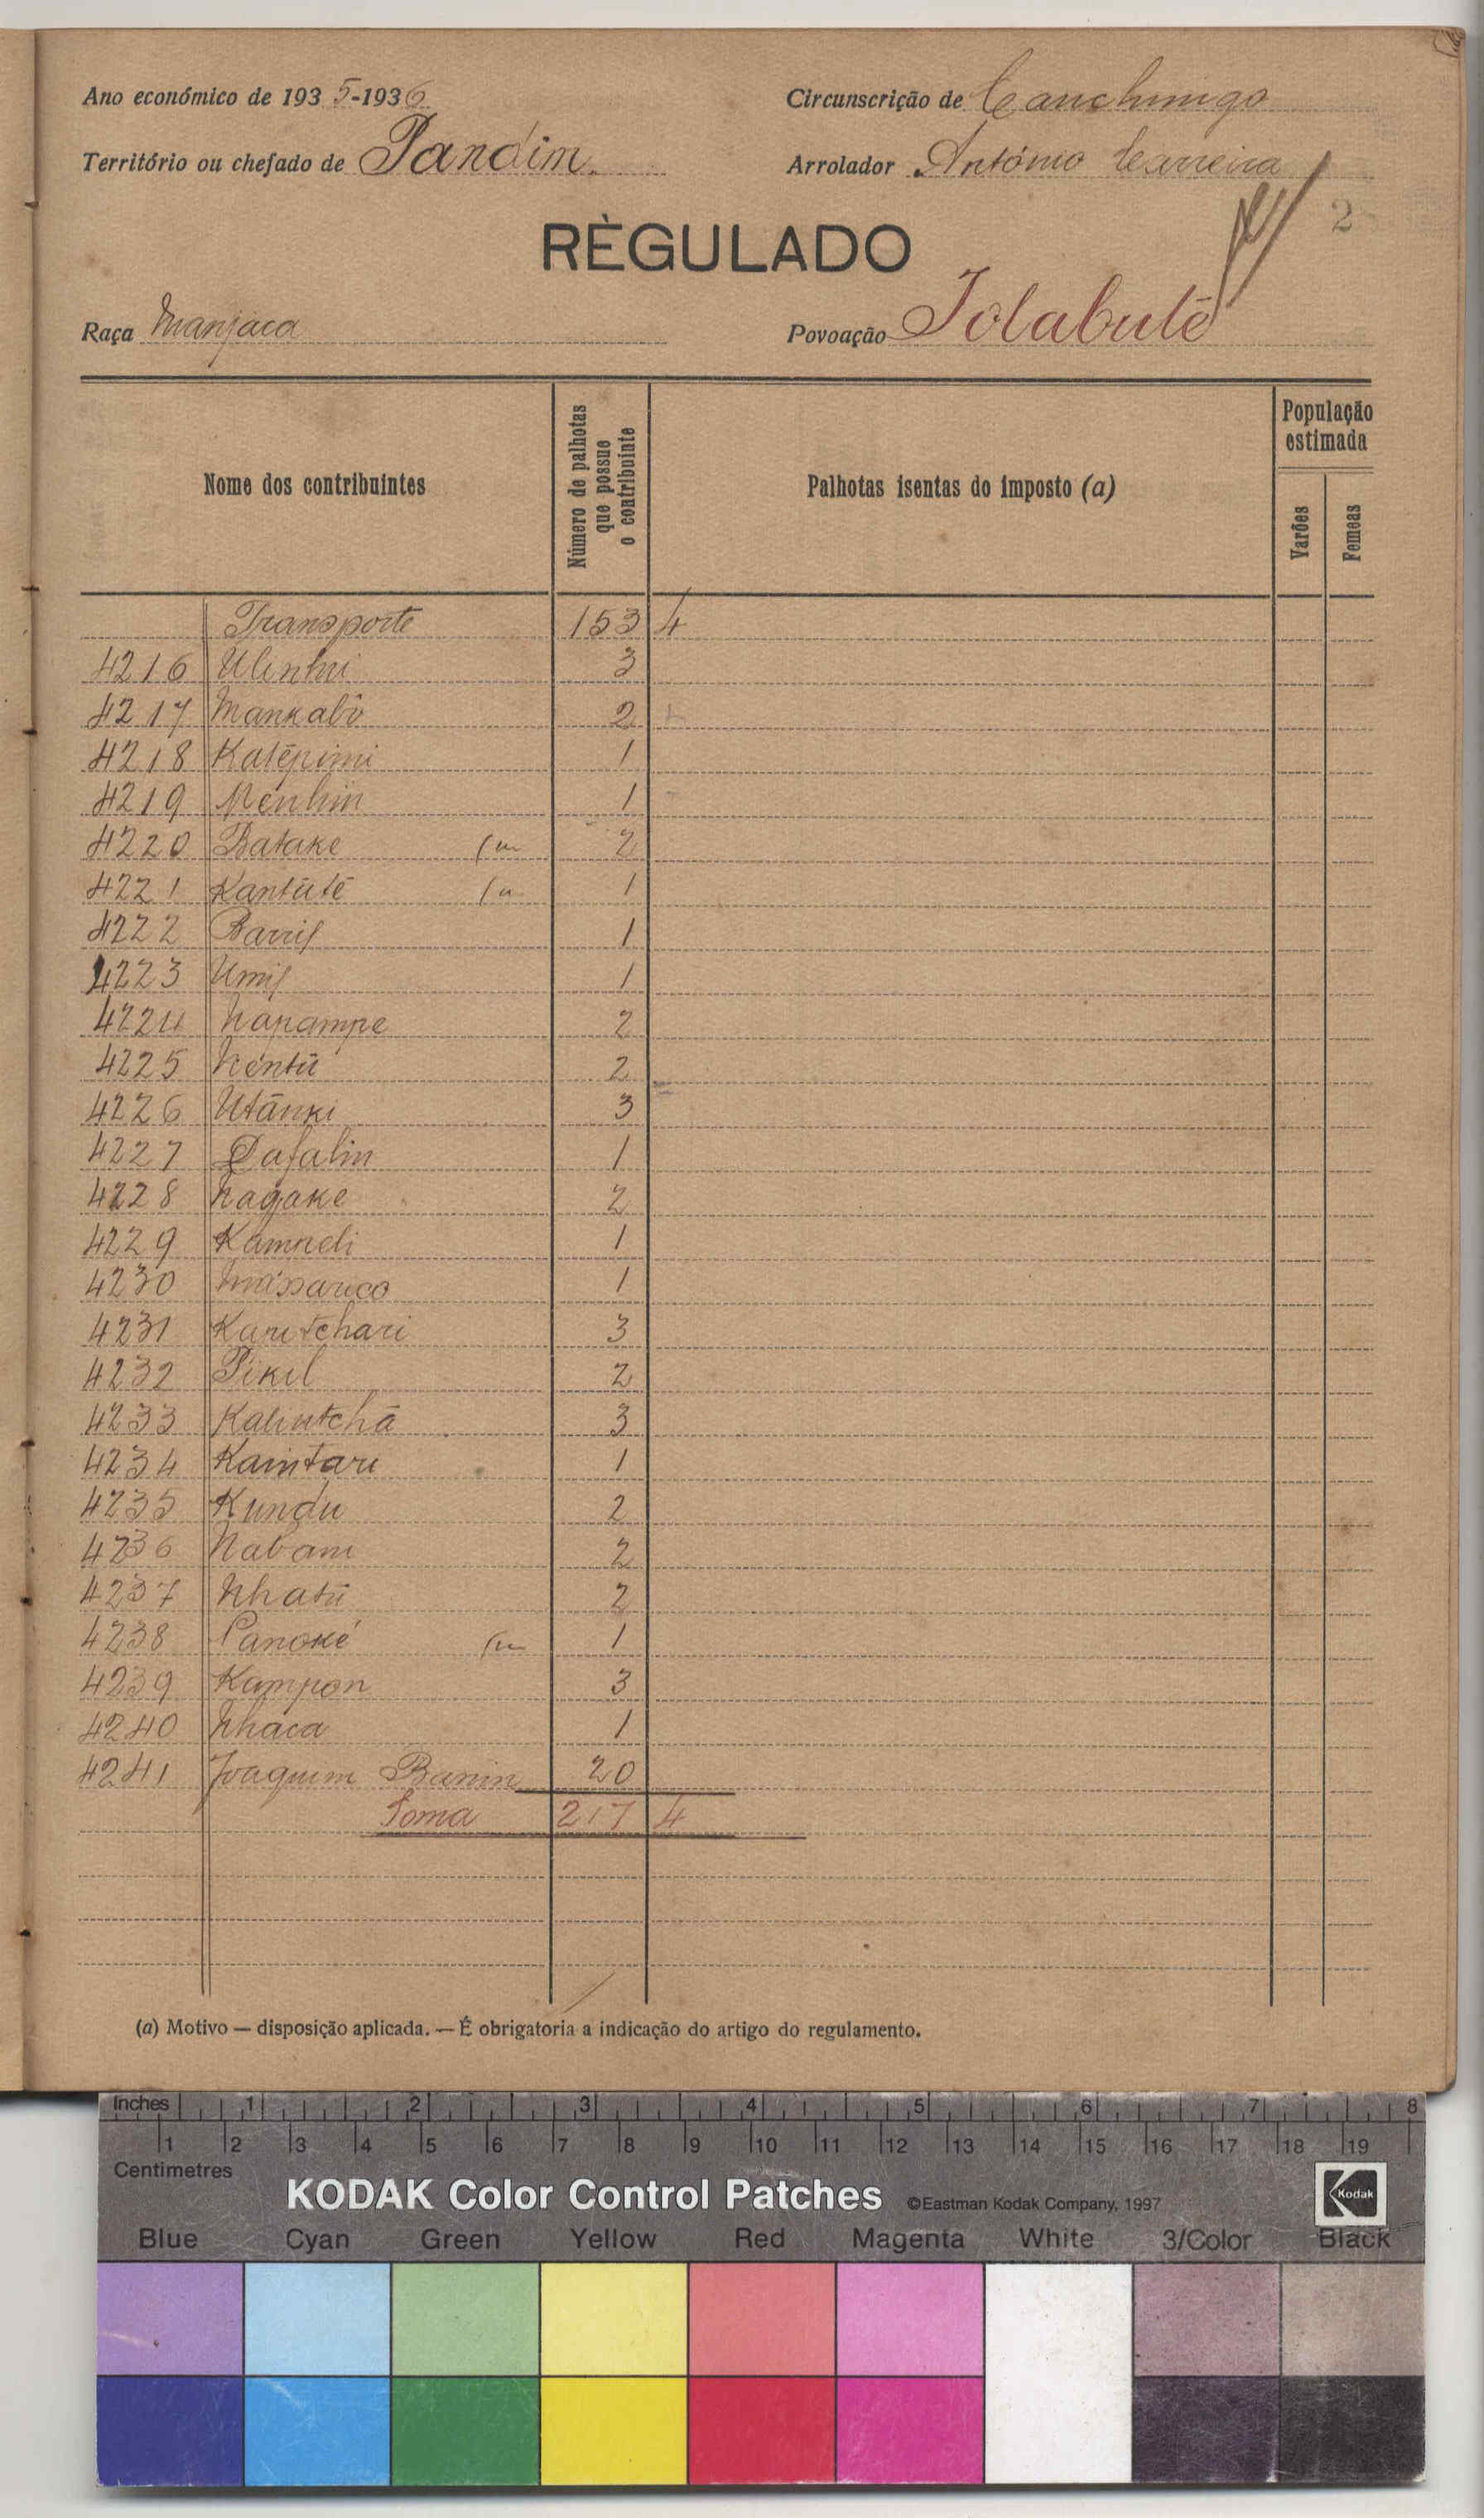 Ano económico de 1935-1936
Circunscrição de Canchungo
Território ou chefado de Pandim.
Arrolador António Carreira
2
RÈGULADO
Raça Manjaca
Povoação Jolabutē
Nome dos contribuintes
Número de palhotas que possue o contribuinte
Palhotas isentas do imposto (a)
População estimada
Varões
Femeas
Transporte 153 4
4216 Ulinhi 3
4217 Mankabô 2
4218 Katēpimi 1
4219 Menhin 1
4220 Batake 2
4221 Kantūtē 1
4222 Barrif 1
4223 Umif 1
4224 Napampe 2
4225 Nentū 2
4226 Utānki 3
4227 Dafalin 1
4228 Nagake 2
4229 Kamneli 1
4230 Massarico 1
4231 Karutchari 3
4232 Pikil 2
4233 Kalintchā 3
4234 Kaintari 1
4235 Kundu 2
4236 Nabam 2
4237 Nhatū 2
4238 Panoké 1
4239 Kampon 3
4240 Nhaca 1
4241 Joaquim Banin 20
Soma 217 4
(a) Motivo — disposição aplicada. — É obrigatoria a indicação do artigo do regulamento.
Inches 1 2 3 4 5 6 7 8
1 2 3 4 5 6 7 8 9 10 11 12 13 14 15 16 17 18 19
Centimetres
KODAK Color Control Patches ©Eastman Kodak Company, 1997 Kodak
Blue Cyan Green Yellow Red Magenta White 3/Color Black